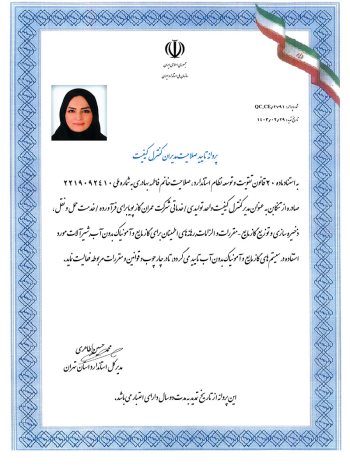 جمهوری اسلامی ایران
سازمان ملی استاندارد ایران
QC_CE/۲۰۹۱
۱۴۰۳/۰۴/۲۹
پروانه تایید صلاحیت مدیران کنترل کیفیت
به استناد ماده ۲۰ قانون تقویت و توسعه نظام استاندارد، صلاحیت خانم فاطمه بهادری به شماره ملی ۲۲۱۹۰۹۲۴۱۰
صادره از تنکابن به عنوان مدیر کنترل کیفیت واحد تولیدی / خدماتی شرکت عمران گاز پویا برای فرآورده / خدمت حمل و نقل ،
ذخیره سازی و توزیع گاز مایع - مقررات و الزامات رله های اطمینان برای گاز مایع و آمونیاک بدون آب، شیرآلات مورد
استفاده در سیستم های گاز مایع و آمونیاک بدون آب تایید می گردد، تا در چارچوب و قوانین و مقررات مربوطه فعالیت نماید.
مدیر کل استاندارد استان تهران
این پروانه از تاریخ تمدید به مدت دو سال دارای اعتبار می باشد.